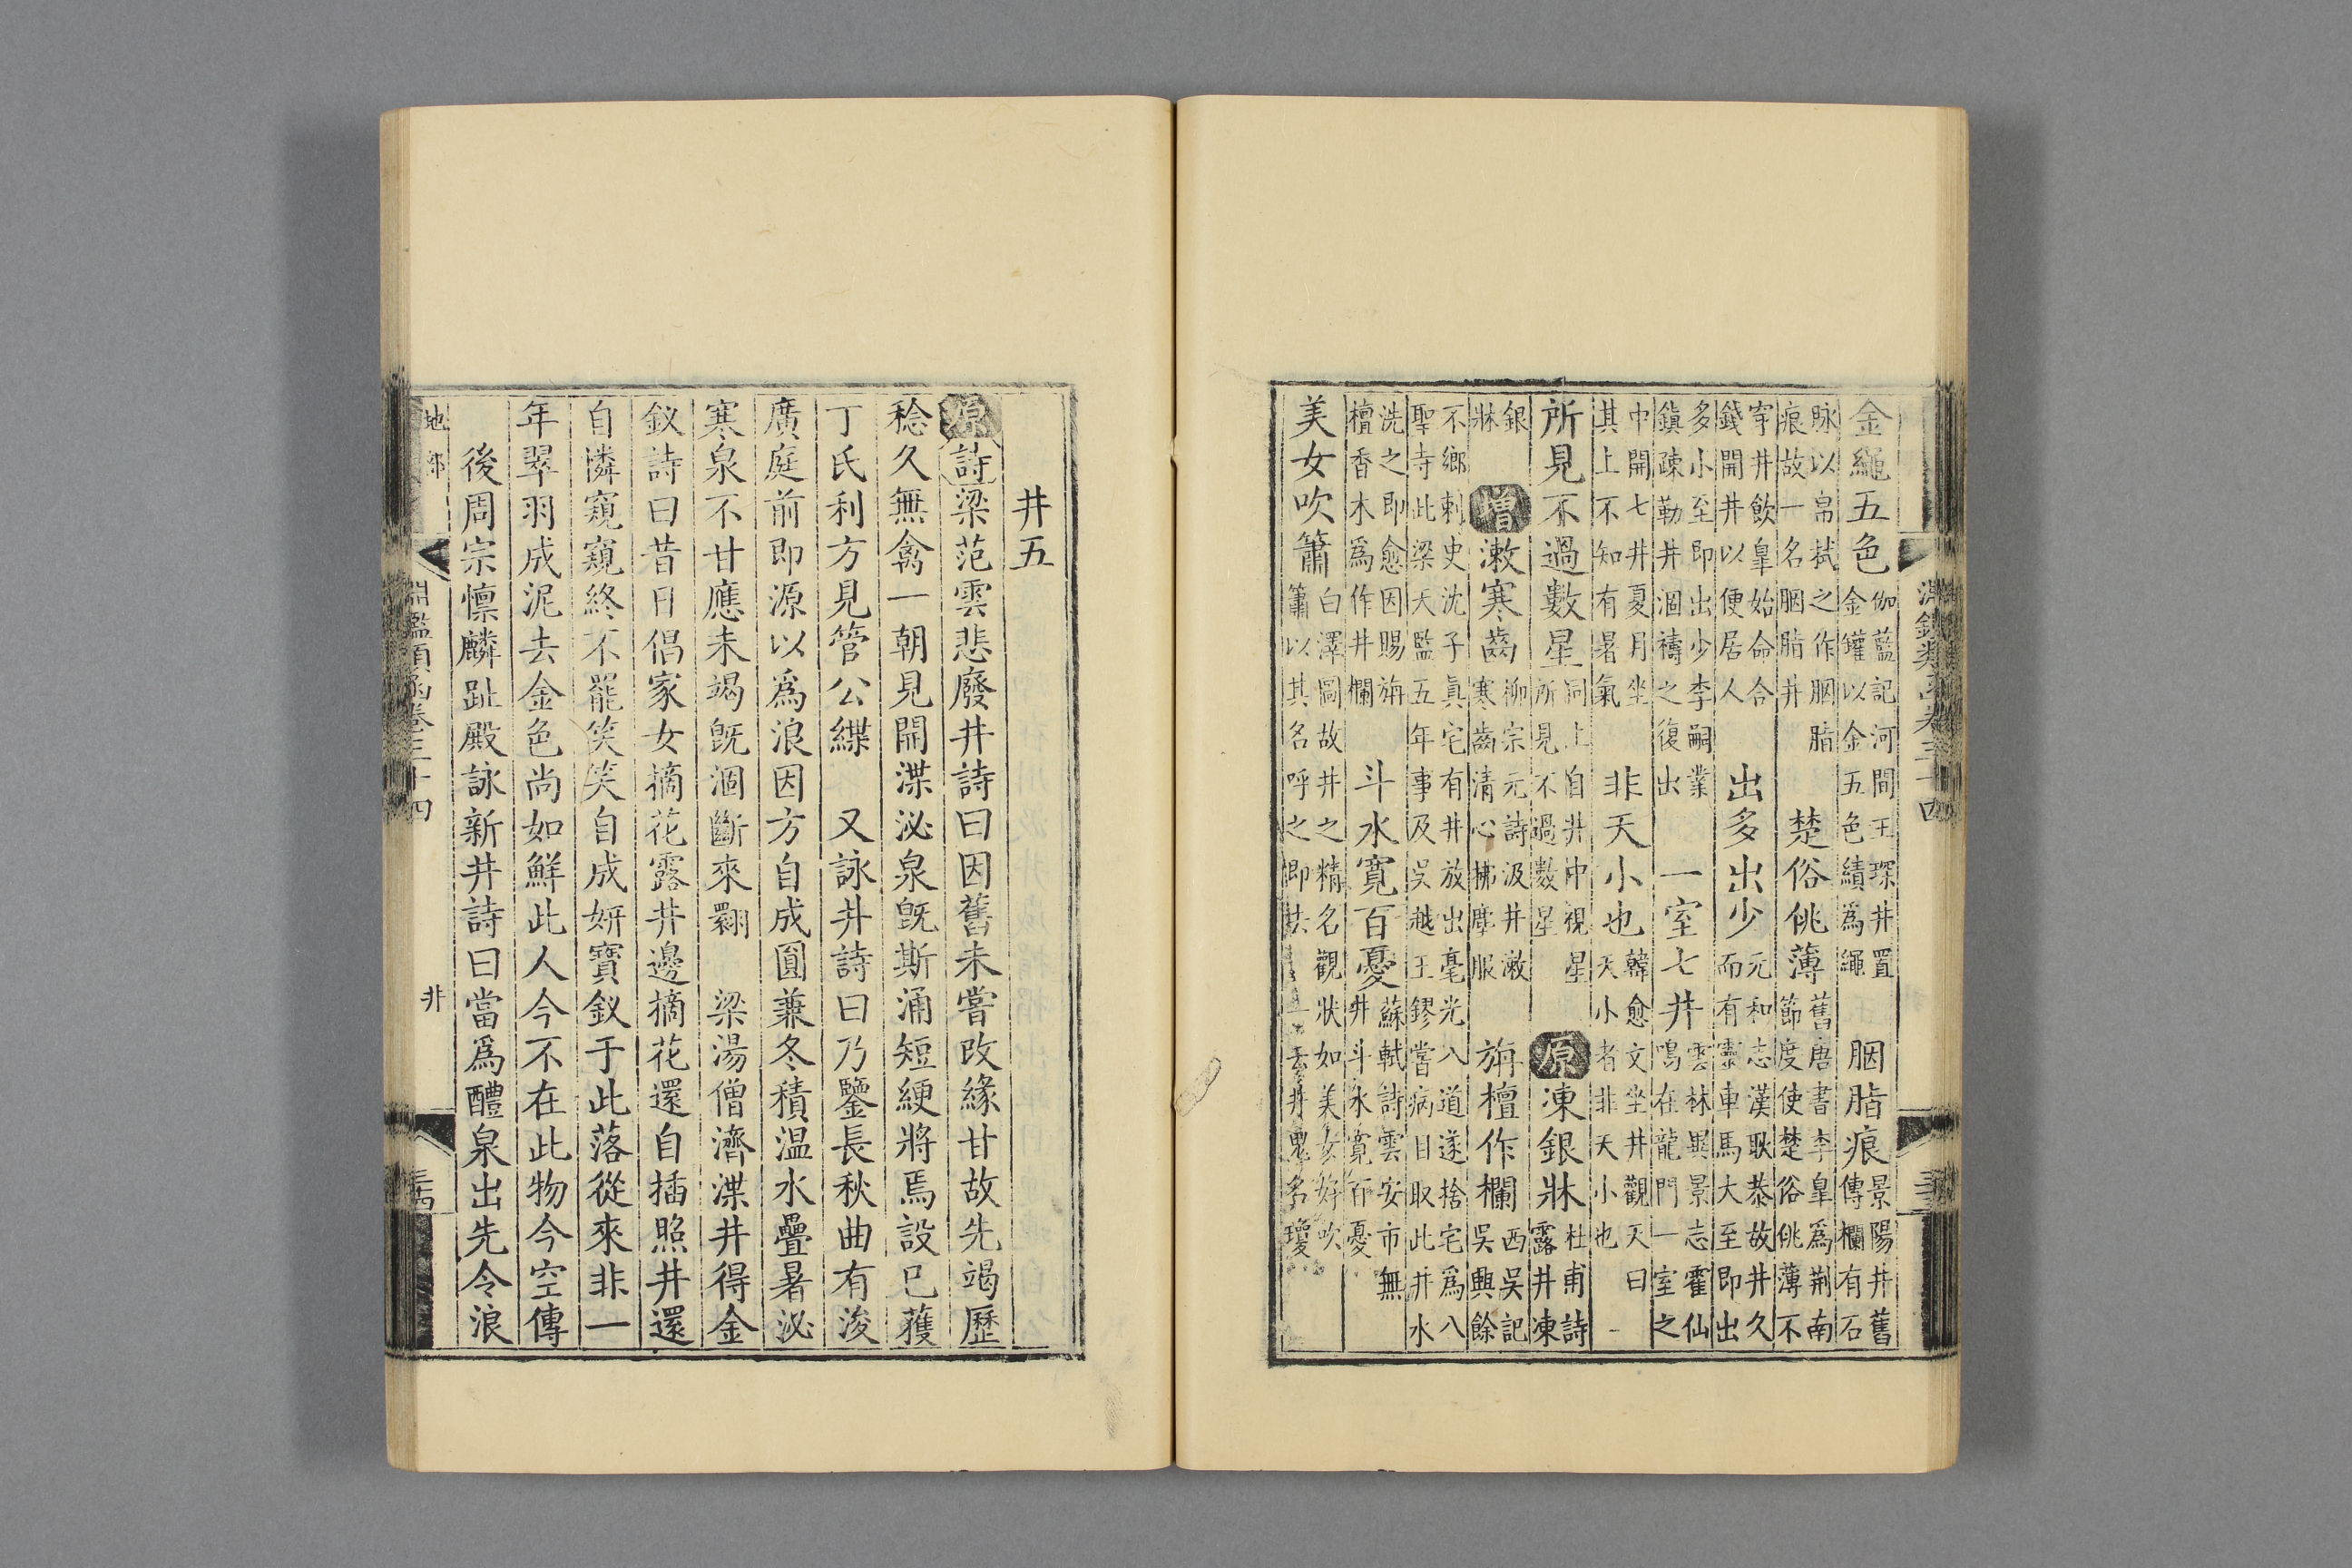 淵鑑類函卷三十四
金繩五色伽藍記河間王琛井置金罐以金五色績為繩胭脂痕景陽井舊傳欄有石
脉以帛拭之作胭脂痕故一名胭脂井楚俗佻薄舊唐書李皐為荆南節度使楚俗佻薄不
穿井飲皐始命合錢開井以便居人出多出少元和志漢耿恭故井久而有車馬大至即出
多小至即出少李嗣業鎮疎勒井涸禱之復出一室七井雲林異景志霍仙鳴在龍門一室之
中開七井夏月坐其上不知有暑氣非天小也韓愈文坐井觀天曰天小者非天小也
所見不過數星同上自井中視星所見不過數星原凍銀牀杜甫詩露井凍
銀牀增漱寒齒柳宗元詩汲井漱寒齒清心拂塵服旃檀作欄西吳記吳興餘
不鄉刺史沈子真宅有井放出毫光八道遂捨宅為八聖寺此梁天監五年事及吳越王鏐嘗病目取此井水
洗之即愈因賜旃檀香木為作井欄斗水寬百憂蘇軾詩雲安市無井斗水寬百憂
美女吹簫白澤圖故井之精名觀狀如美女好吹簫以其名呼之即去一云井鬼名瓊
井五
原詩梁范雲悲廢井詩曰因舊未嘗改緣甘故先竭歷
稔久無禽一朝見開渫泌泉旣斯涌短綆將焉設已獲
丁氏利方見管公緤　又詠井詩曰乃鑒長秋曲有浚
廣庭前即源以為浪因方自成圓兼冬積溫水疊暑泌
寒泉不甘應未竭旣涸斷來翾　梁湯僧濟渫井得金
釵詩曰昔日倡家女摘花露井邊摘花還自插照井還
自憐窺窺終不罷笑笑自成妍寶釵于此落從來非一
年翠羽成泥去金色尚如鮮此人今不在此物今空傳
後周宗懍麟趾殿詠新井詩曰當為醴泉出先令浪
地部　淵鑑類函卷三十四　井　三十四